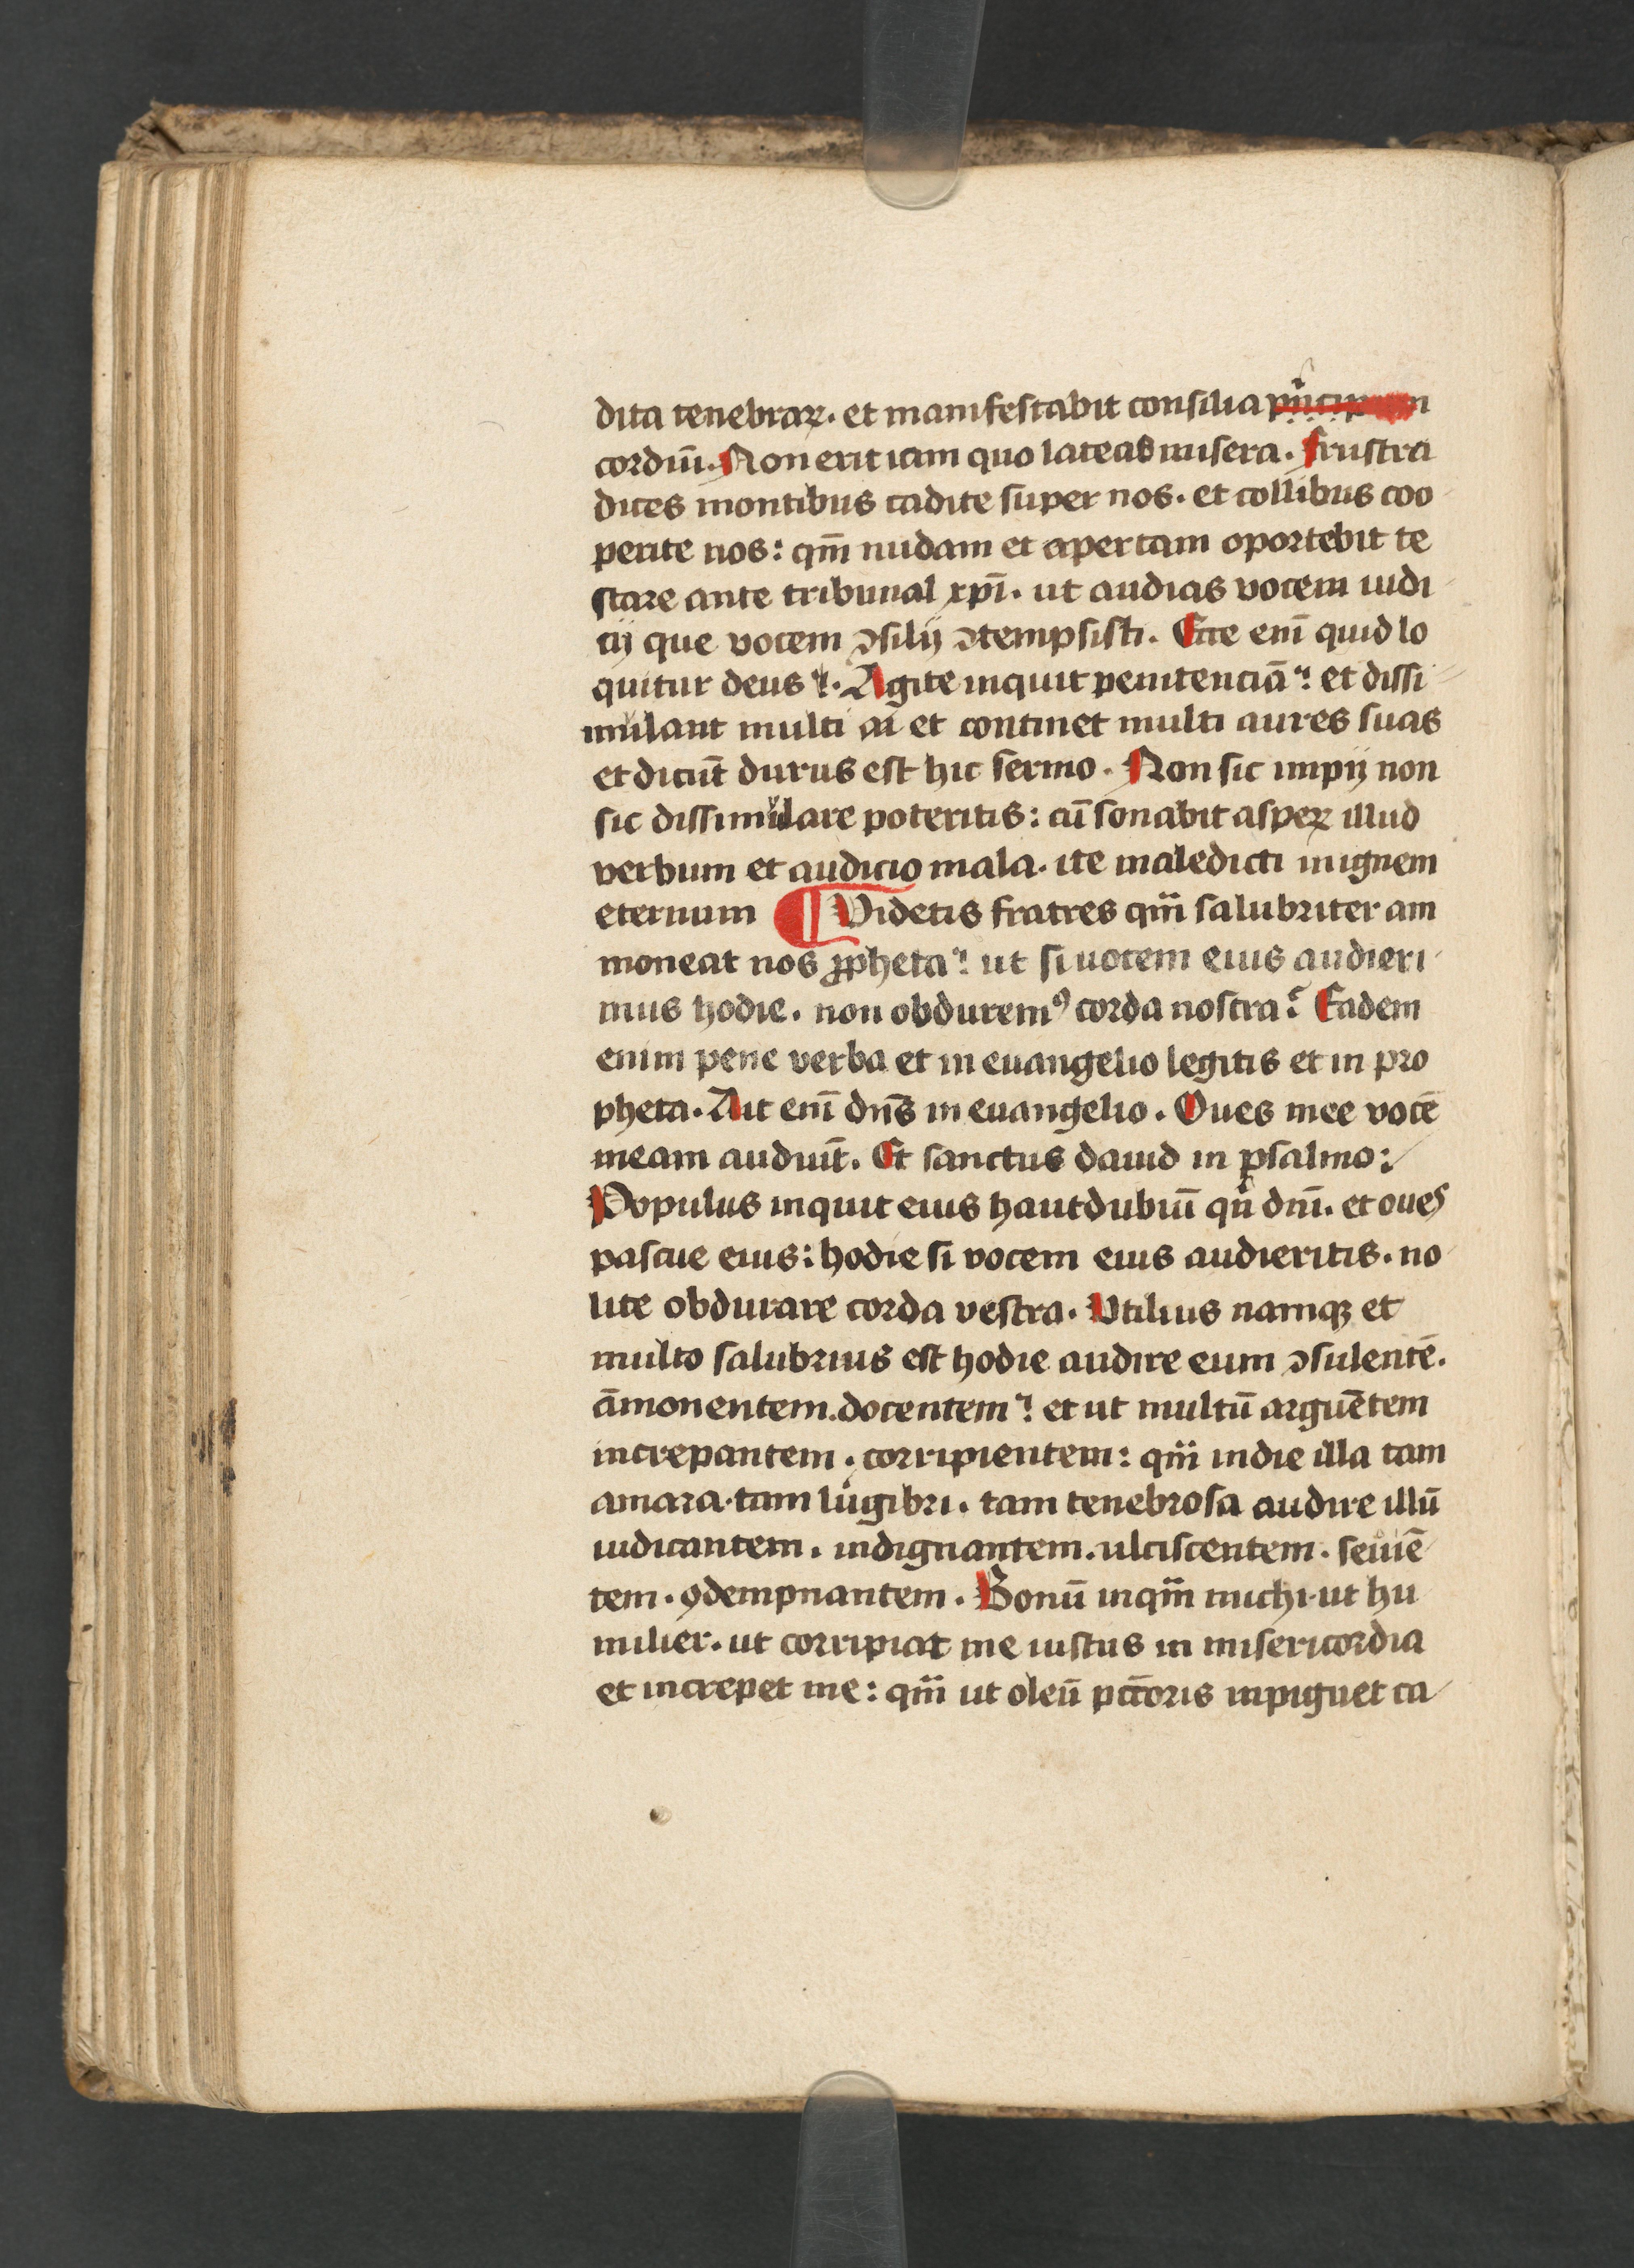 dita tenebraꝝ. et manifestabit consilia pͥncipum
cordiū. Non erit iam quo lateas misera. Frustra
dices montibus cadite super nos. et collibus coo
perite nos: qm̄ nudam et apertam oportebit te
stare ante tribunal xp̄i. ut audias vocem iudi
cij que vocem ↄsilij ↄtempsisti. Ecce em̄ quid lo
quitur deus. Agite inquit penitenciā: et dissi
mulant multi ai et continet multi aures suas
et dicūt durus est hic sermo. Non sic impij non
sic dissimulare poteritis: cū sonabit asper illud
verbum et audicio mala. ite maledicti in ignem
eternum ¶ Videtis fratres qm̄ salubriter am
moneat nos ꝓpheta: ut si uocem eius audieri
mus hodie. non obduremꝰ corda nostra? Eadem
enim pene verba et in euangelio legitis et in pro
pheta. Ait em̄ dn̄s in euangelio. Oues mee vocē
meam audiūt. Et sanctus dauid in psalmo:
Populus inquit eius haut dubiū qͥn dn̄i. et oues
pascue eius: hodie si vocem eius audieritis. no
lite obdurare corda vestra. Vtilius namqꝫ et
multo salubrius est hodie audire eum ↄsulentē.
āmonentem. docentem: et ut multū arguētem
increpantem. corripientem: qm̄ in die illa tam
amara. tam lugibri. tam tenebrosa audire illū
iudicantem. indignantem. ulciscentem. seuiē
tem. ꝯdempnantem. Bonū inqm̄ michi. ut hu
milier. ut corripiat me iustus in misericordia
et increpet me: qm̄ ut oleū pcc̄oris inpiguet ca